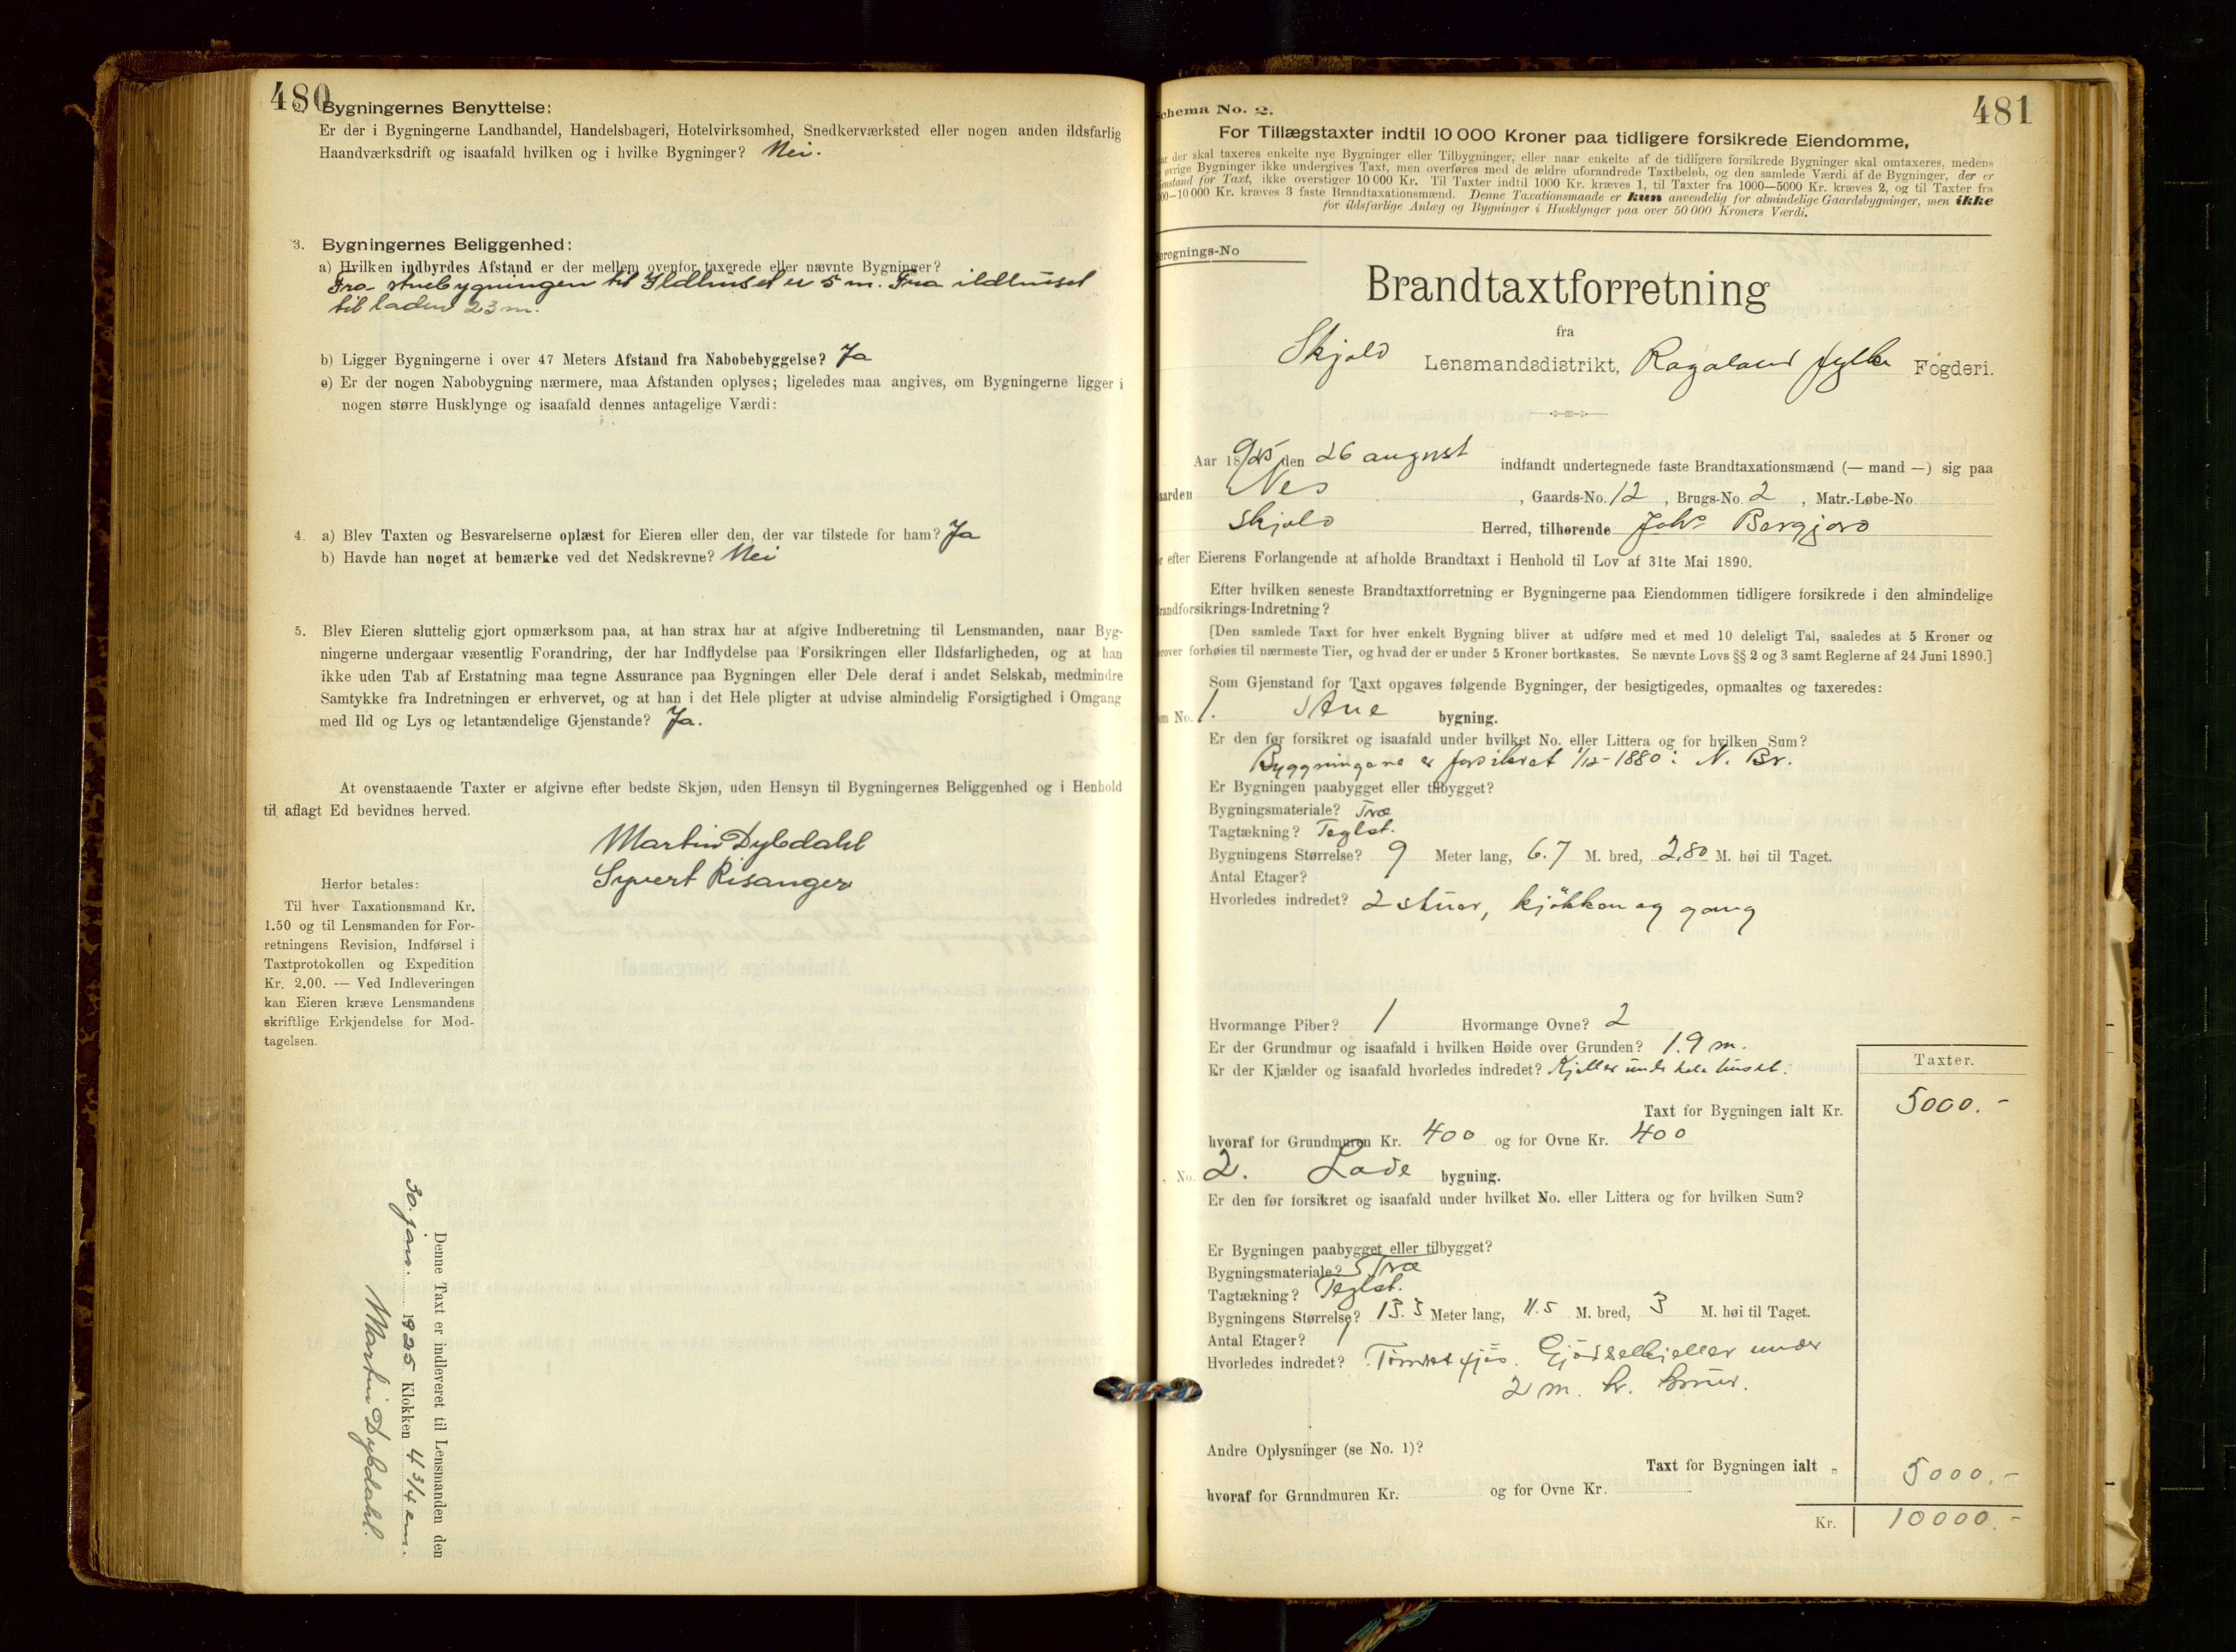 480
2. Bygningernes Benyttelse:
Er der i Bygningerne Landhandel, Handelsbageri, Hotelvirksomhed, Snedkerværksted eller nogen anden ildsfarlig
Haandværksdrift og isaafald hvilken og i hvilke Bygninger? Nei.
3. Bygningernes Beliggenhed:
a) Hvilken indbyrdes Afstand er der mellem ovenfor taxerede eller nævnte Bygninger?
Fra stuebygningen til Ildhuset er 5 m. Fra ildhuset
til laden 23 m.
b) Ligger Bygningerne i over 47 Meters Afstand fra Nabobebyggelse? Ja
c) Er der nogen Nabobygning nærmere, maa Afstanden oplyses; ligeledes maa angives, om Bygningerne ligger i
nogen større Husklynge og isaafald dennes antagelige Værdi:
4. a) Blev Taxten og Besvarelserne oplæst for Eieren eller den, der var tilstede for ham? Ja
b) Havde han noget at bemærke ved det Nedskrevne? Nei
5. Blev Eieren sluttelig gjort opmærksom paa, at han strax har at afgive Indberetning til Lensmanden, naar Byg-
ningerne undergaar væsentlig Forandring, der har Indflydelse paa Forsikringen eller Ildsfarligheden, og at han
ikke uden Tab af Erstatning maa tegne Assurance paa Bygningen eller Dele deraf i andet Selskab, medmindre
Samtykke fra Indretningen er erhvervet, og at han i det Hele pligter at udvise almindelig Forsigtighed i Omgang
med Ild og Lys og letantændelige Gjenstande? Ja.
At ovenstaaende Taxter er afgivne efter bedste Skjøn, uden Hensyn til Bygningernes Beliggenhed og i Henhold
til aflagt Ed bevidnes herved.
Martin Dybdahl
Syvert Risanger
Herfor betales:
Til hver Taxationsmand Kr.
1.50 og til Lensmanden for For-
retningens Revision, Indførsel i
Taxtprotokollen og Expedition
Kr. 2.00. — Ved Indleveringen
kan Eieren kræve Lensmandens
skriftlige Erkjendelse for Mod-
tagelsen.
Denne Taxt er indleveret til Lensmanden den
30. jan. 1925 Klokken 4 3/4 em.
Martin Dybdahl.
481
Schema No. 2.
For Tillægstaxter indtil 10 000 Kroner paa tidligere forsikrede Eiendomme,
der skal taxeres enkelte nye Bygninger eller Tilbygninger, eller naar enkelte af de tidligere forsikrede Bygninger skal omtaxeres, medens
øvrige Bygninger ikke undergives Taxt, men overføres med de ældre uforandrede Taxtbeløb, og den samlede Værdi af de Bygninger, der er
Gjenstand for Taxt, ikke overstiger 10 000 Kr. Til Taxter indtil 1000 Kr. kræves 1, til Taxter fra 1000—5000 Kr. kræves 2, og til Taxter fra
00—10 000 Kr. kræves 3 faste Brandtaxationsmænd. Denne Taxationsmaade er kun anvendelig for almindelige Gaardsbygninger, men ikke
for ildsfarlige Anlæg og Bygninger i Husklynger paa over 50 000 Kroners Værdi.
Beregnings-No
Brandtaxtforretning
fra
Skjold Lensmandsdistrikt, Rogaland fylke Fogderi.
Aar 1925 den 26 august indfandt undertegnede faste Brandtaxationsmænd (— mand —) sig paa
Gaarden Nes, Gaards-No. 12, Brugs-No. 2, Matr.-Løbe-No.
Skjold Herred, tilhørende Johs Bergjord
efter Eierens Forlangende at afholde Brandtaxt i Henhold til Lov af 31te Mai 1890.
Efter hvilken seneste Brandtaxtforretning er Bygningerne paa Eiendommen tidligere forsikrede i den almindelige
Brandforsikrings-Indretning?
[Den samlede Taxt for hver enkelt Bygning bliver at udføre med et med 10 deleligt Tal, saaledes at 5 Kroner og
derover forhøies til nærmeste Tier, og hvad der er under 5 Kroner bortkastes. Se nævnte Lovs §§ 2 og 3 samt Reglerne af 24 Juni 1890.]
Som Gjenstand for Taxt opgaves følgende Bygninger, der besigtigedes, opmaaltes og taxeredes:
Som No. 1. Stue bygning.
Er den før forsikret og isaafald under hvilket No. eller Littera og for hvilken Sum?
Byggningane er forsikret 1/12-1880 i N. Br.
Er Bygningen paabygget eller tilbygget?
Bygningsmateriale? Træ
Tagtækning? Teglst.
Bygningens Størrelse? 9 Meter lang, 6.7 M. bred, 2,80 M. høi til Taget.
Antal Etager?
Hvorledes indredet? 2 stuer, kjøkken og gang
Hvormange Piber? 1 Hvormange Ovne? 2
Er der Grundmur og isaafald i hvilken Høide over Grunden? 1.9 m.
Er der Kjælder og isaafald hvorledes indredet? Kjeller under hele huset.
Taxter.
Taxt for Bygningen ialt Kr. 5000.-
hvoraf for Grundmuren Kr. 400 og for Ovne Kr. 400
No. 2. Lade bygning.
Er den før forsikret og isaafald under hvilket No. eller Littera og for hvilken Sum?
Er Bygningen paabygget eller tilbygget?
Bygningsmateriale? Træ
Tagtækning? Teglst.
Bygningens Størrelse? 13.3 Meter lang, 11.5 M. bred, 3 M. høi til Taget.
Antal Etager? 1
Hvorledes indredet? Tømret fjøs. Gjødselkjeller under
2 m. h. mur.
Andre Oplysninger (se No. 1)?
Taxt for Bygningen ialt „ 5000.-
hvoraf for Grundmuren Kr. og for Ovne Kr.
Kr. 10000.-